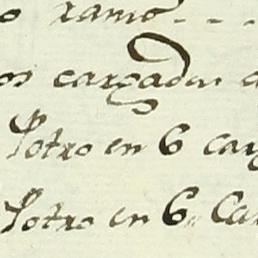 o ramo - - -
os cargados a
Potro en 6 car
Potro en 6 Ca